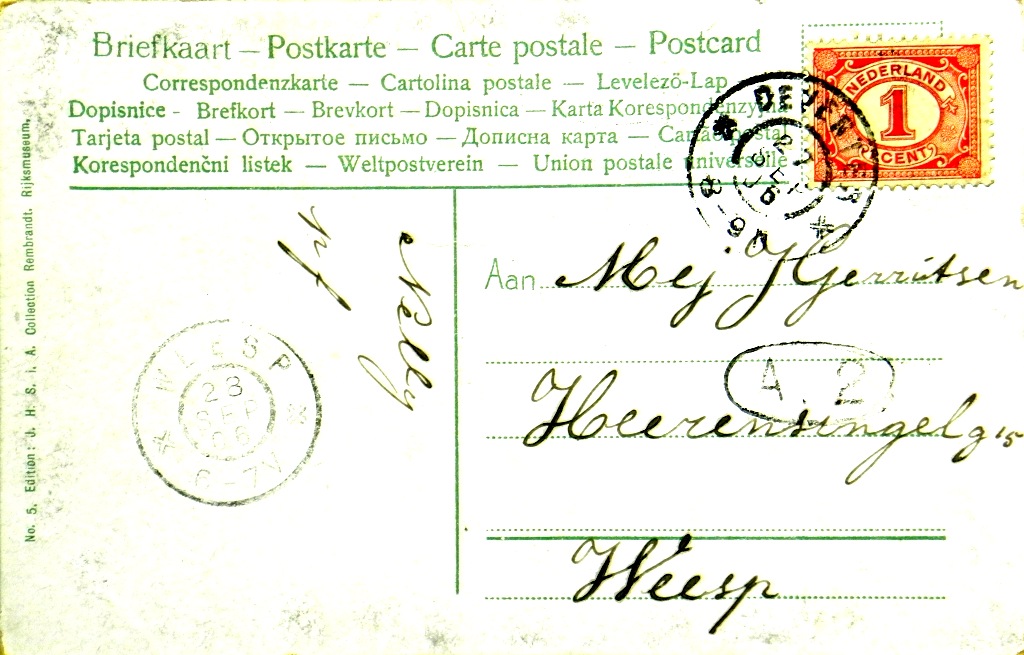 Briefkaart – Postkarte – Carte postale – Postcard
Correspondenzkarte – Cartolina postale – Levelező-Lap
Dopisnice - Brefkort – Brevkort – Dopisnica – Karta Korespondenzyjna
Tarjeta postal – Открытое письмо – Дописна карта – Cartão postal
Korespondenční listek – Weltpostverein – Union postale universelle
NEDERLAND
1
CENT
DEVENTER
8-9 V
Nelly
Aan Mej J Gerritsen
A 2
Heerensingel g 15
Weesp
WEESP
23
SEP
06
6-7V
No. 5. Edition: J. H. S. i. A. Collection Rembrandt. Rijksmuseum.